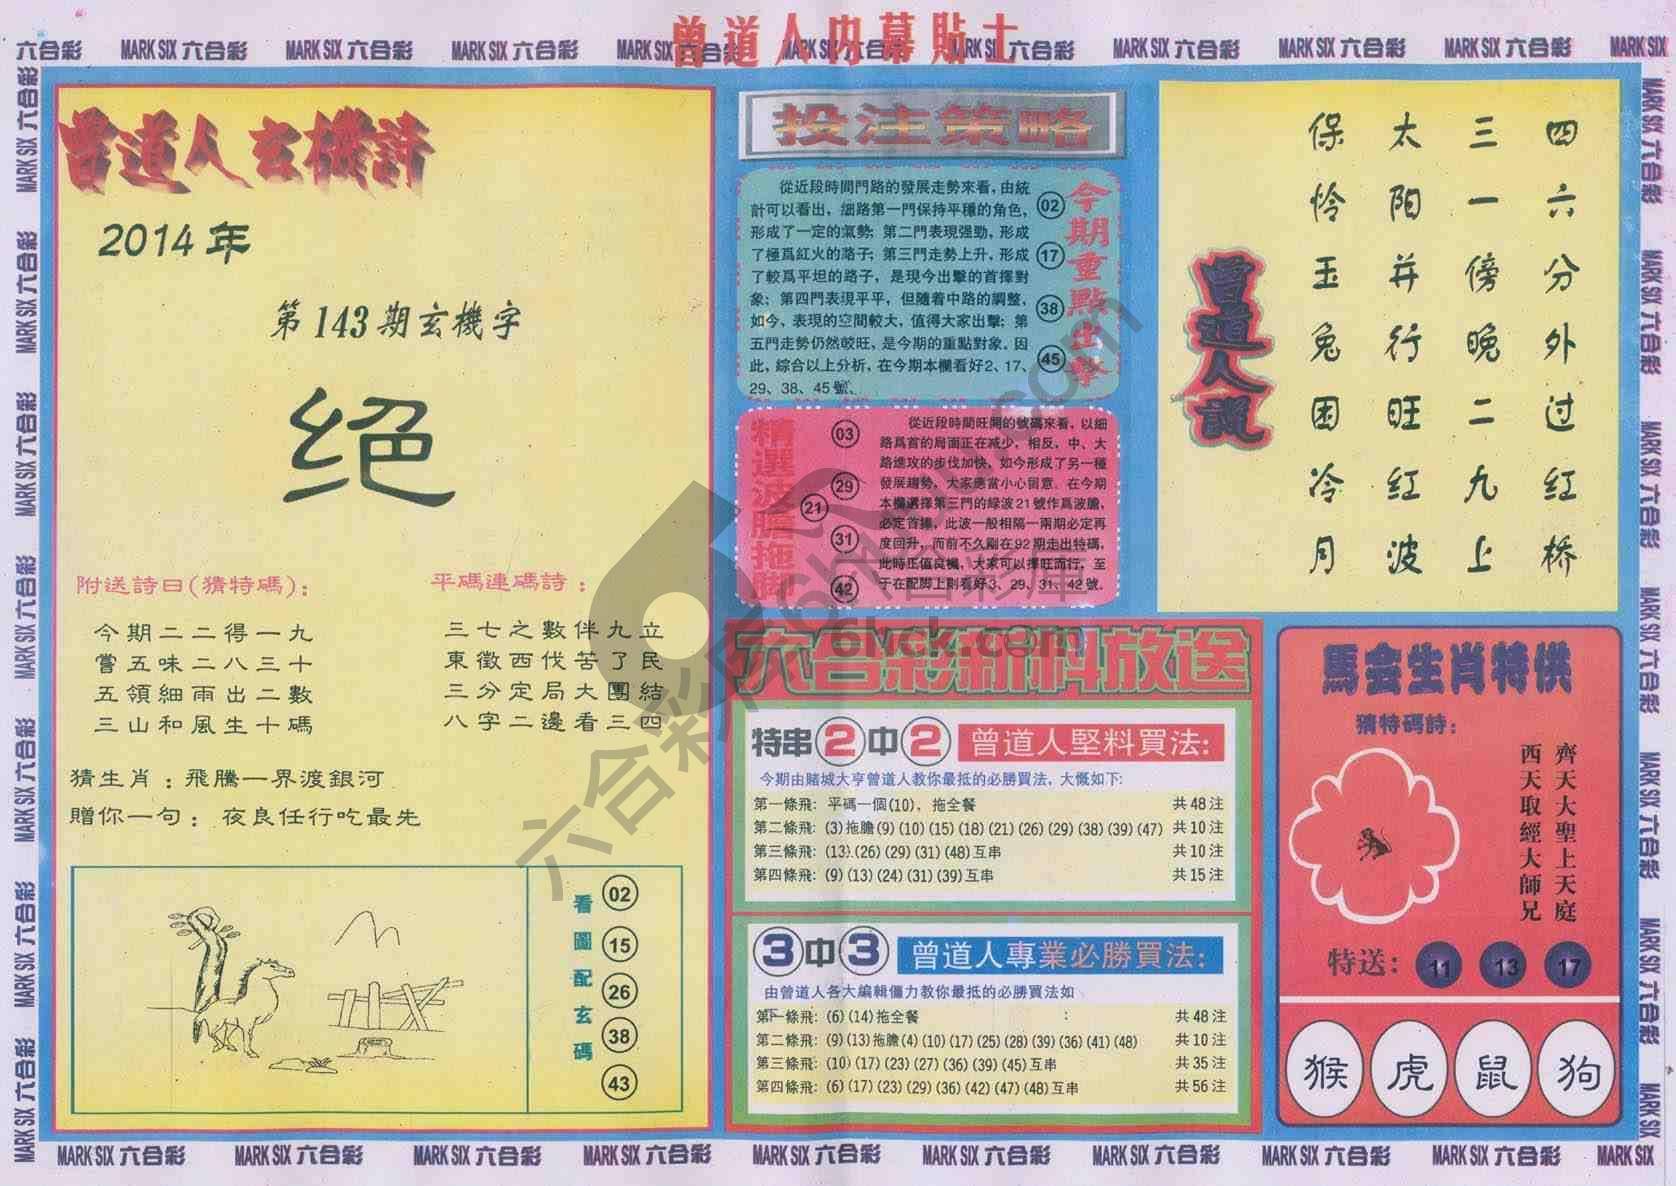 曾道人内幕貼士
六合彩 MARK SIX 六合彩 MARK SIX 六合彩 MARK SIX 六合彩 MARK SIX 六合彩 MARK SIX 六合彩 MARK SIX 六合彩 MARK SIX 六合彩 MARK SIX 六合彩 MARK SIX 六合彩 MARK SIX
曾道人玄機詩
2014年
第143期玄機字
绝
附送詩曰(猜特碼):
今期二二得一九
嘗五味二八三十
五領細雨出二數
三山和風生十碼
平碼連碼詩:
三七之數伴九立
東徵西伐苦了民
三分定局大團結
八字二邊看三四
猜生肖:飛騰一界渡銀河
贈你一句:夜良任行吃最先
看圖配玄碼
02
15
26
38
43
投注策略
從近段時間門路的發展走勢來看,由統
計可以看出,細路第一門保持平穩的角色,
形成了一定的氣勢;第二門表現强勁,形成
了極爲紅火的路子;第三門走勢上升,形成
了較爲平坦的路子,是現今出擊的首擇對
象;第四門表現平平,但隨着中路的調整,
如今、表現的空間較大,值得大家出擊;第
五門走勢仍然皎旺,是今期的重點對象。因
此,綜合以上分析,在今期本欄看好2、17、
29、38、45號、
02
17
38
45
今期重點出擊
精選波膽拖脚
03
29
21
31
42
從近段時間旺開的號碼來看,以細
路爲首的局面正在减少,相反,中、大
路進攻的步伐加快,如今形成了另一種
發展趨勢,大家應當小心留意。在今期
本欄選擇第三門的緑波21號作爲波膽,
必定首捧,此波一般相隔一兩期必定再
度回升,而前不久剛在92期走出特碼,
此時正值良機,大家可以擇旺而行,至
于在配脚上則看好3、29、31、42號.
六合彩新料放送
特串2中2 曾道人堅料買法:
今期由賭城大亨曾道人教你最抵的必勝買法,大慨如下:
第一條飛: 平碼一個(10),拖全餐 共48注
第二條飛: (3)拖膽(9)(10)(15)(18)(21)(26)(29)(38)(39)(47) 共10注
第三條飛: (13).(26)(29)(31)(48)互串 共10注
第四條飛: (9)(13)(24)(31)(39)互串 共15注
3中3 曾道人專業必勝買法:
由曾道人各大編輯傴力教你最抵的必勝買法如
第一條飛: (6)(14)拖全餐 : 共48注
第二條飛: (9)(13)拖膽(4)(10)(17)(25)(28)(39)(36)(41)(48) 共10注
第三條飛: (10)(17)(23)(27)(36)(39)(45)互串 共35注
第四條飛: (6)(17)(23)(29)(36)(42)(47)(48)互串 共56注
四六分外过红桥
三一傍晚二九上
太阳并行旺红波
保怜玉兔困冷月
曾道人說
馬会生肖特供
猜特碼詩:
齊天大聖上天庭
西天取經大師兄
特送: 11 13 17
猴 虎 鼠 狗
MARK SIX 六合彩 MARK SIX 六合彩 MARK SIX 六合彩 MARK SIX 六合彩 MARK SIX 六合彩 MARK SIX 六合彩 MARK SIX 六合彩 MARK SIX 六合彩 MARK SIX 六合彩 MARK SIX